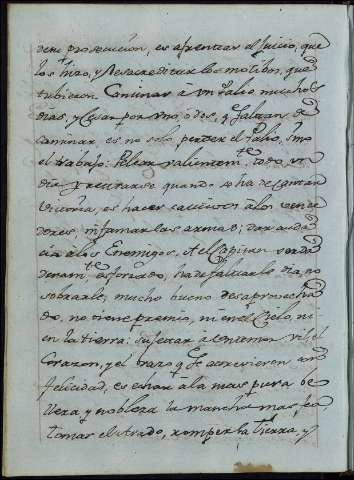 dene prosecucion, es afrentar el Juicio, que
los hizo, y desacreditar los motibos, que
tubieron. Caminar a vn Palio muchos
dias, y cesar por vno, ò dos, q̃ faltan de
caminar es no solo perder el Palio, sino
el trabajo: Pelear valientem.te todo vn
dia y retirarse quando se ha de cantar
victoria, es hacer cautivos à los vence
dores, infamar las armas, dar auda
cia à los Enemigos. Al Capitan verda
deram.te esforzado, ha de faltarle dia, no
sobrarle; mucho bueno desaprovecha
do, no tiene premio, ni en el Cielo, ni
en la tierra: sujetar à el temor vil, el
Corazon, y el brazo q̃ se atrevieron con
felicidad, es echar a la mas pura be
lleza y nobleza la mancha mas fea,
tomas el Arado, romper la tierra, y